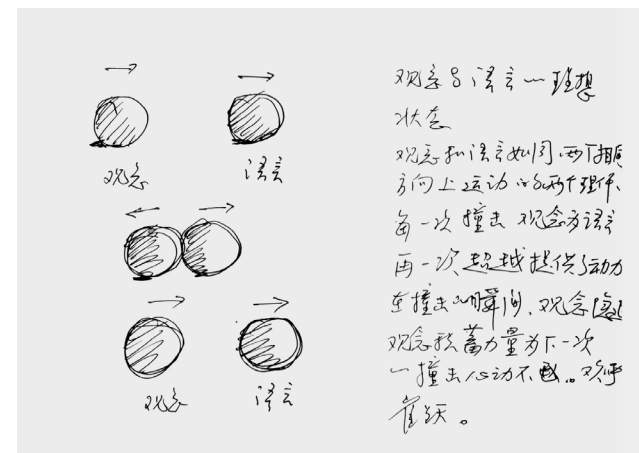 观念
语言
观念
语言
观念与语言一理想
状态
观念和语言如同两个相同
方向上运动的两个球体、
每一次撞击 观念为语言
再一次超越提供了动力
在撞击的瞬间、观念
观念积蓄力量为下一次
一撞击心动不
雀跃。